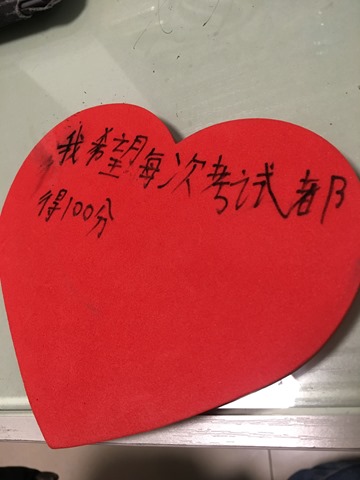 我希望每次考试都
得100分